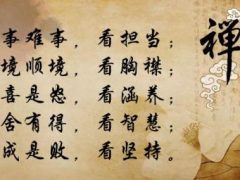 事难事，看担当；
境顺境，看胸襟；
喜是怒，看涵养；
舍有得，看智慧；
成是败，看坚持。
禅